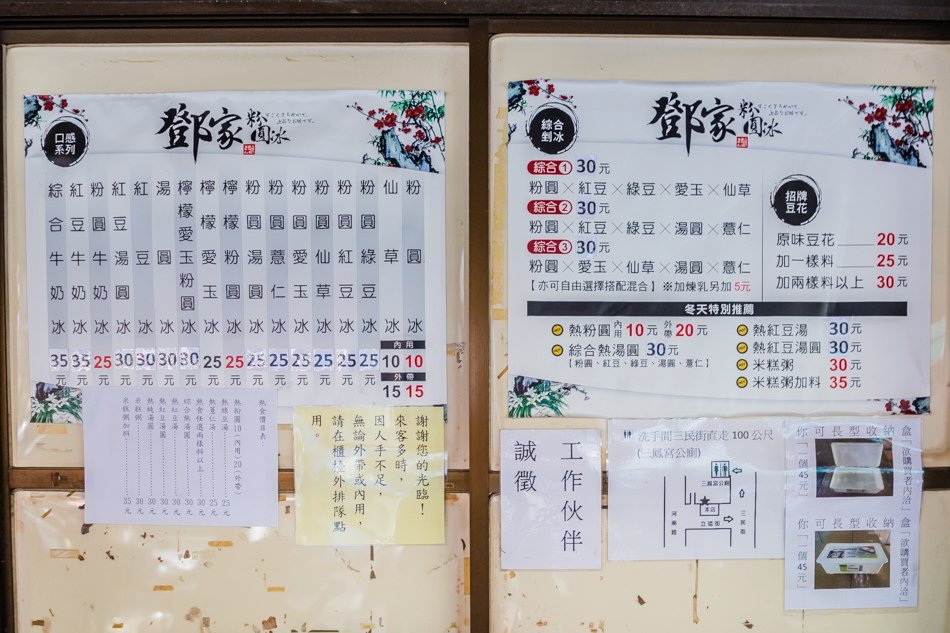 口感
系列
鄧家粉圓冰
粉圓冰 內用10元 外帶15元
仙草冰 內用10元 外帶15元
粉圓綠豆冰 25元
粉圓紅豆冰 25元
粉圓仙草冰 25元
粉圓愛玉冰 25元
粉圓薏仁冰 25元
粉圓湯圓冰 25元
檸檬粉圓冰 25元
檸檬愛玉冰 25元
檸檬愛玉粉圓冰 30元
湯圓冰 30元
紅豆冰 30元
紅豆湯圓冰 30元
粉圓牛奶冰 25元
紅豆牛奶冰 35元
綜合牛奶冰 35元
熱食價目表
熱粉圓10(內用) 20(外帶)
熱綠豆湯 25元
熱薏仁湯 25元
熱食任選兩樣料以上 30元
綜合熱湯圓 30元
熱紅豆湯 30元
熱紅豆湯圓 30元
熱純湯圓 30元
米糕粥 30元
米糕粥加料 35元
謝謝您的光臨!
來客多時,
因人手不足,
無論外帶或內用,
請在櫃檯外排隊點
用。
綜合
剉冰
鄧家粉圓冰
綜合1 30元
粉圓×紅豆×綠豆×愛玉×仙草
綜合2 30元
粉圓×紅豆×綠豆×湯圓×薏仁
綜合3 30元
粉圓×愛玉×仙草×湯圓×薏仁
【亦可自由選擇搭配混合】※加煉乳另加 5元
招牌
豆花
原味豆花____20元
加一樣料 25元
加兩樣料以上 30元
冬天特別推薦
熱粉圓 內用10元 外帶20元
綜合熱湯圓 30元
【粉圓、紅豆、綠豆、湯圓、薏仁】
熱紅豆湯 30元
熱紅豆湯圓 30元
米糕粥 30元
米糕粥加料 35元
工作伙伴
誠徵
洗手間三民街直走 100 公尺
(三鳳宮公廁)
三鳳宮公廁
本店
立德街
河南路
三民街
你可長型收納盒
「欲購買者內洽」
「一個45元」
你可長型收納盒
「欲購買者內洽」
「一個45元」